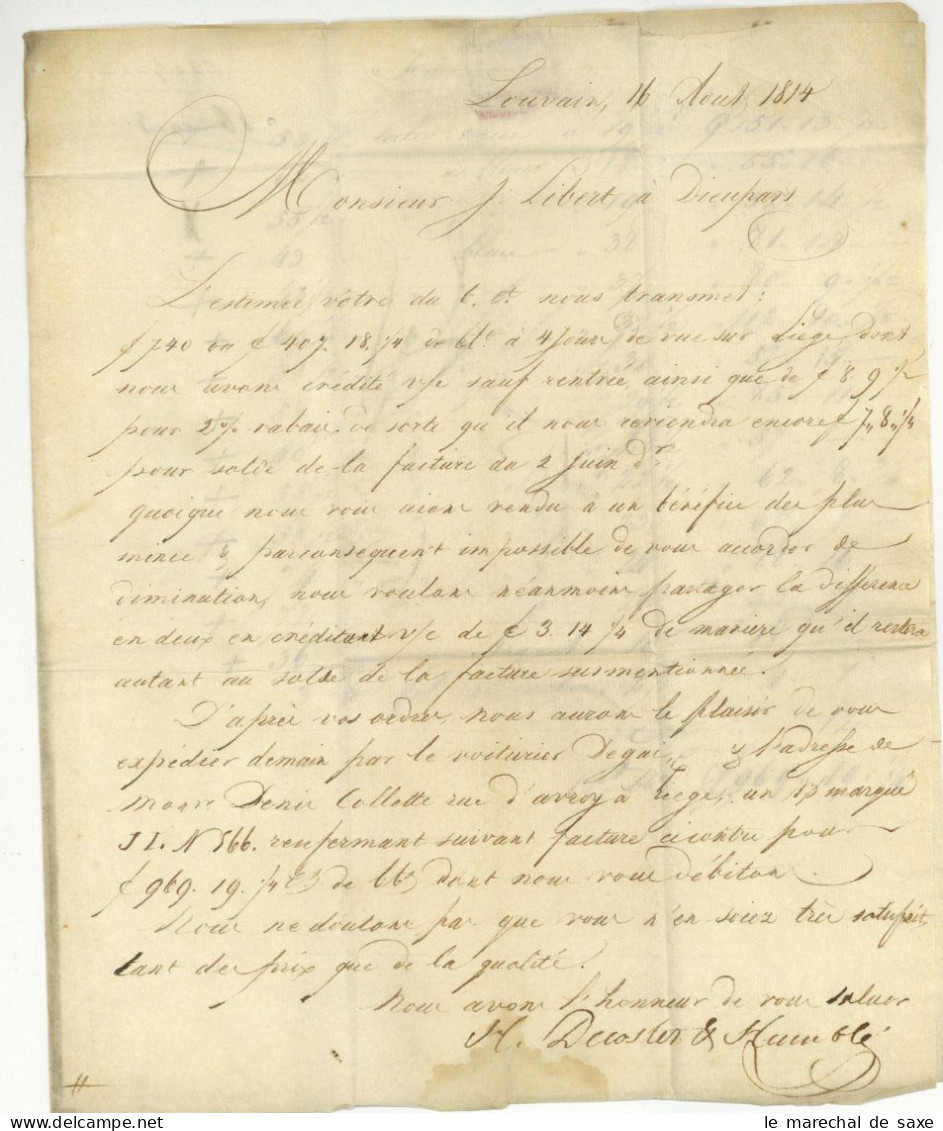 Louvain, 16 Aout 1814
Monsieur J. Libert, à Dieupart
L'estimée vôtre du 6. ct. nous transmet:
f 740 ou £ 407. 18. 1/4 de bt. à 4 jours de vue sur Liege, dont
nous avons crédité v/c sauf rentrée, ainsi que de £ 8. 9 1/2
pour 2 % rabais, de sorte qu'il nous reviendra encore £ 7,, 8,, 1/4
pour solde de la facture du 2 Juin dr.
quoique nous vous aions vendu à un bénéfice des plus
mince & parconsequent impossible de vous accorder de
diminution, nous voulons néanmoins partager la différence
en deux en créditant v/c de £ 3. 14 1/4 de maniere qu'il restera
autant au solde de la facture susmentionnée.
D'après vos ordres, nous aurons le plaisir de vous
expédier demain par le voiturier Degai, à l'adresse de
Monsr Denis Collette rue d'avroy à Liege, un marqué
J L. N 566. renfermant suivant facture ci contre pour
£ 969. 19. 1/4 ct. de bt. dont nous vous débitons.
Nous ne doutons pas que vous n'en soiez très satisfait,
tant des prix que de la qualité.
Nous avons l'honneur de vous saluer
H. Decoster & Humblé
le marechal de saxe